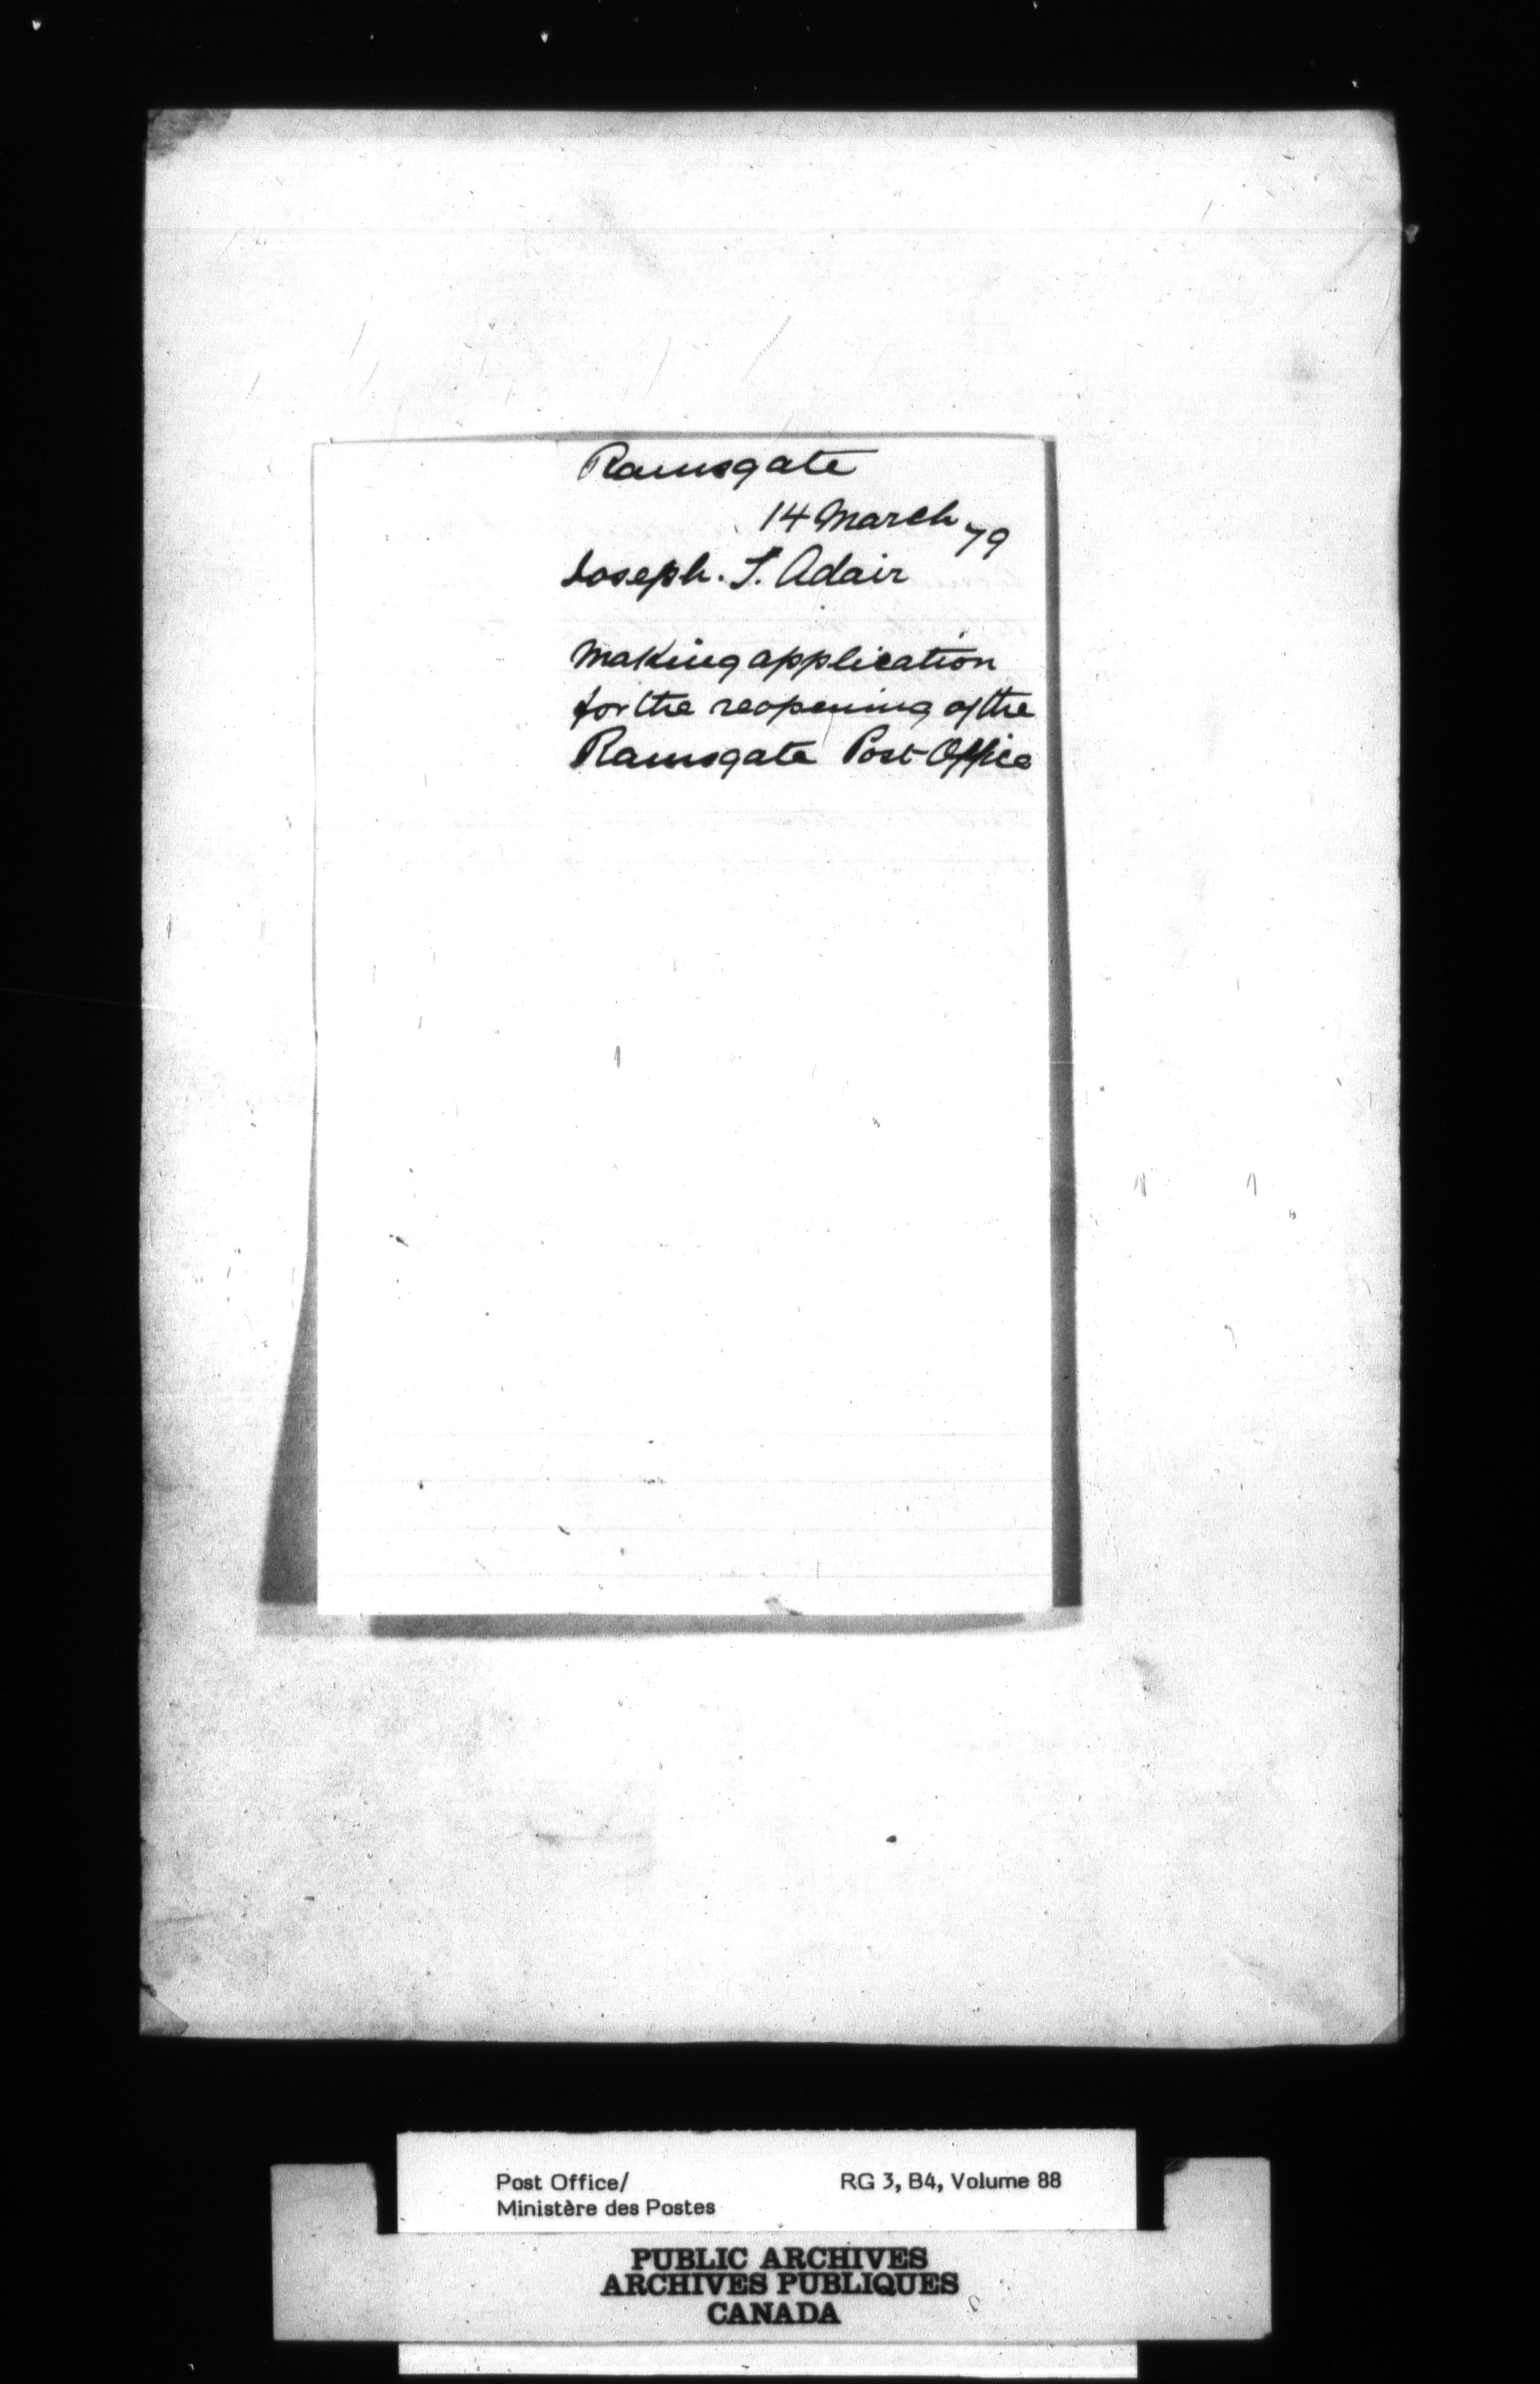 Ramsgate
14 March 79
Joseph. S. Adair
Making application
for the reopening of the
Ramsgate Post Office
Post Office/
Ministère des Postes
RG 3, B4, Volume 88
PUBLIC ARCHIVES
ARCHIVES PUBLIQUES
CANADA